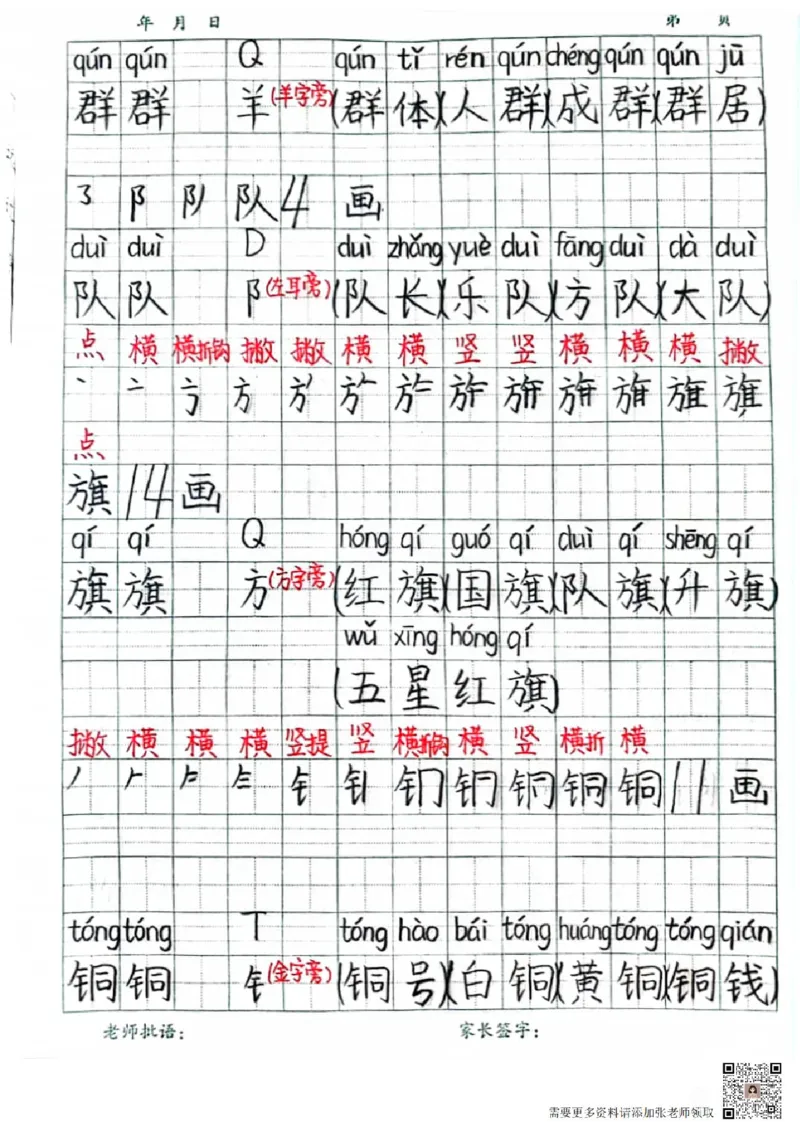 年 月 日 第 页
qún qún Q qún tǐ rén qún chéng qún qún jū
群 群 羊 (羊字旁) (群 体)(人 群)(成 群)(群 居)
阝 队 4 画
duì duì D duì zhǎng yuè duì fāng duì dà duì
队 队 阝(左耳旁) (队 长)(乐 队)(方 队)(大 队)
点 横 横折钩 撇 撇 横 横 竖 竖 横 横 横 撇
方 旗
点
旗 14 画
qí qí Q hóng qí guó qí duì qí shēng qí
旗 旗 方(方字旁) (红 旗)(国 旗)(队 旗)(升 旗)
wǔ xīng hóng qí
(五 星 红 旗)
撇 横 横 横 竖提 竖 横折钩 横 竖 横折 横
钅 铜 11 画
tóng tóng T tóng hào bái tóng huáng tóng tóng qián
铜 铜 钅(金字旁) (铜 号)(白 铜)(黄 铜)(铜 钱)
老师批语: 家长签字:
需要更多资料请添加张老师领取